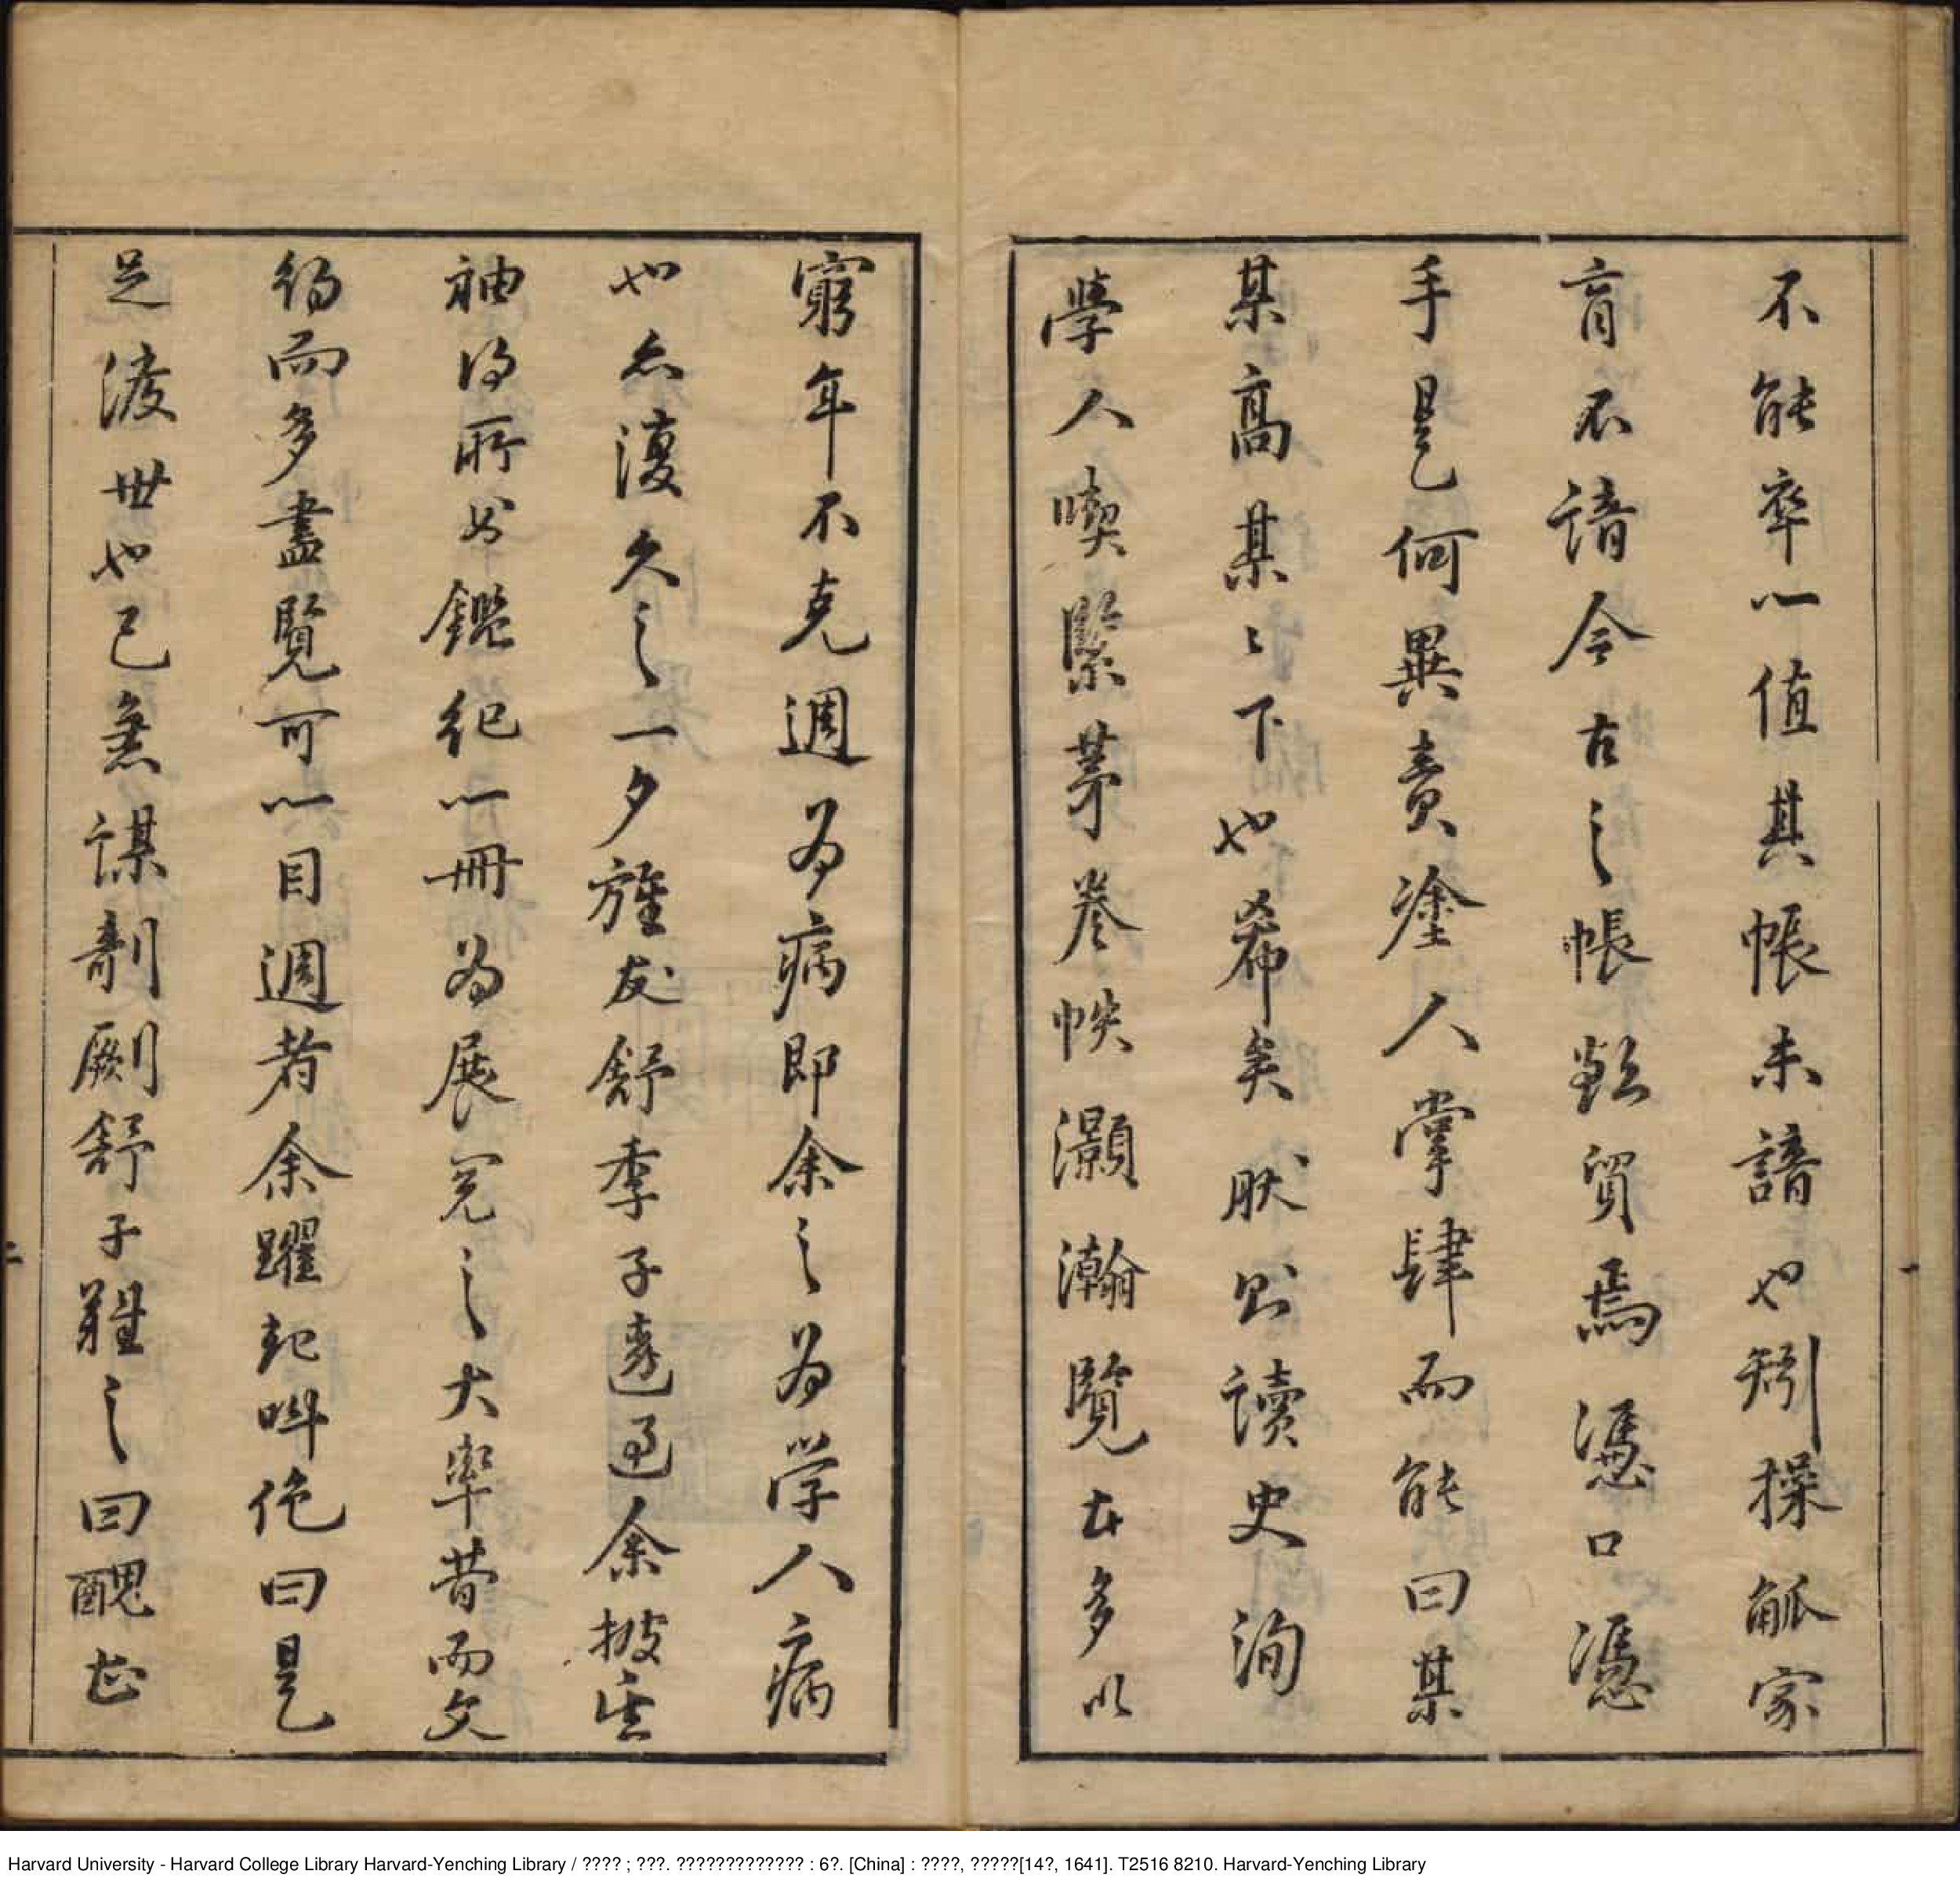 不能率以值其帳未諳也矧操觚家
肓不諳今古之帳貿焉憑口憑
手是何異責塗人掌肆而能曰某
某高某〻下也希矣肰則讀史洵
學人喫緊苐卷帙灝瀚覽者多以
窮年不克週為病即余之為学人病
也亦復久之一夕旌友舒季子過余掖
袖得所為鑑紀一冊為展究之大率昔而文
約而多盡覽可以目週者余躍起叫絶曰是
足渡世也已無謀剞劂舒子難之曰醜
Harvard University - Harvard College Library Harvard-Yenching Library / ???? ; ???. ????????????? : 6?. [China] : ????, ?????[14?, 1641]. T2516 8210. Harvard-Yenching Library